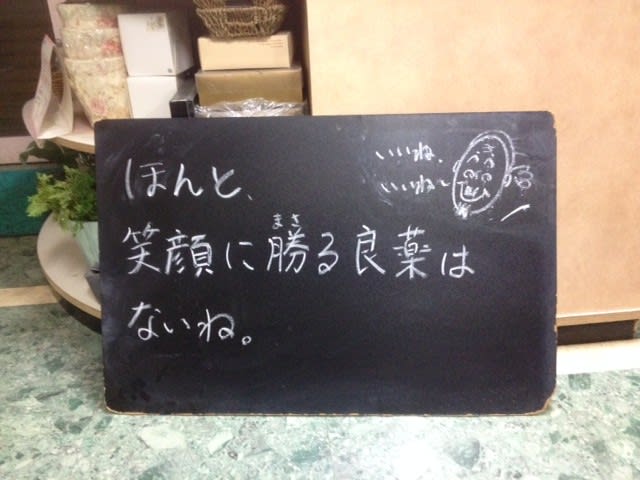 ほんと、
笑顔に勝る良薬は
まさ
ないね。
いいね、
いいね〜